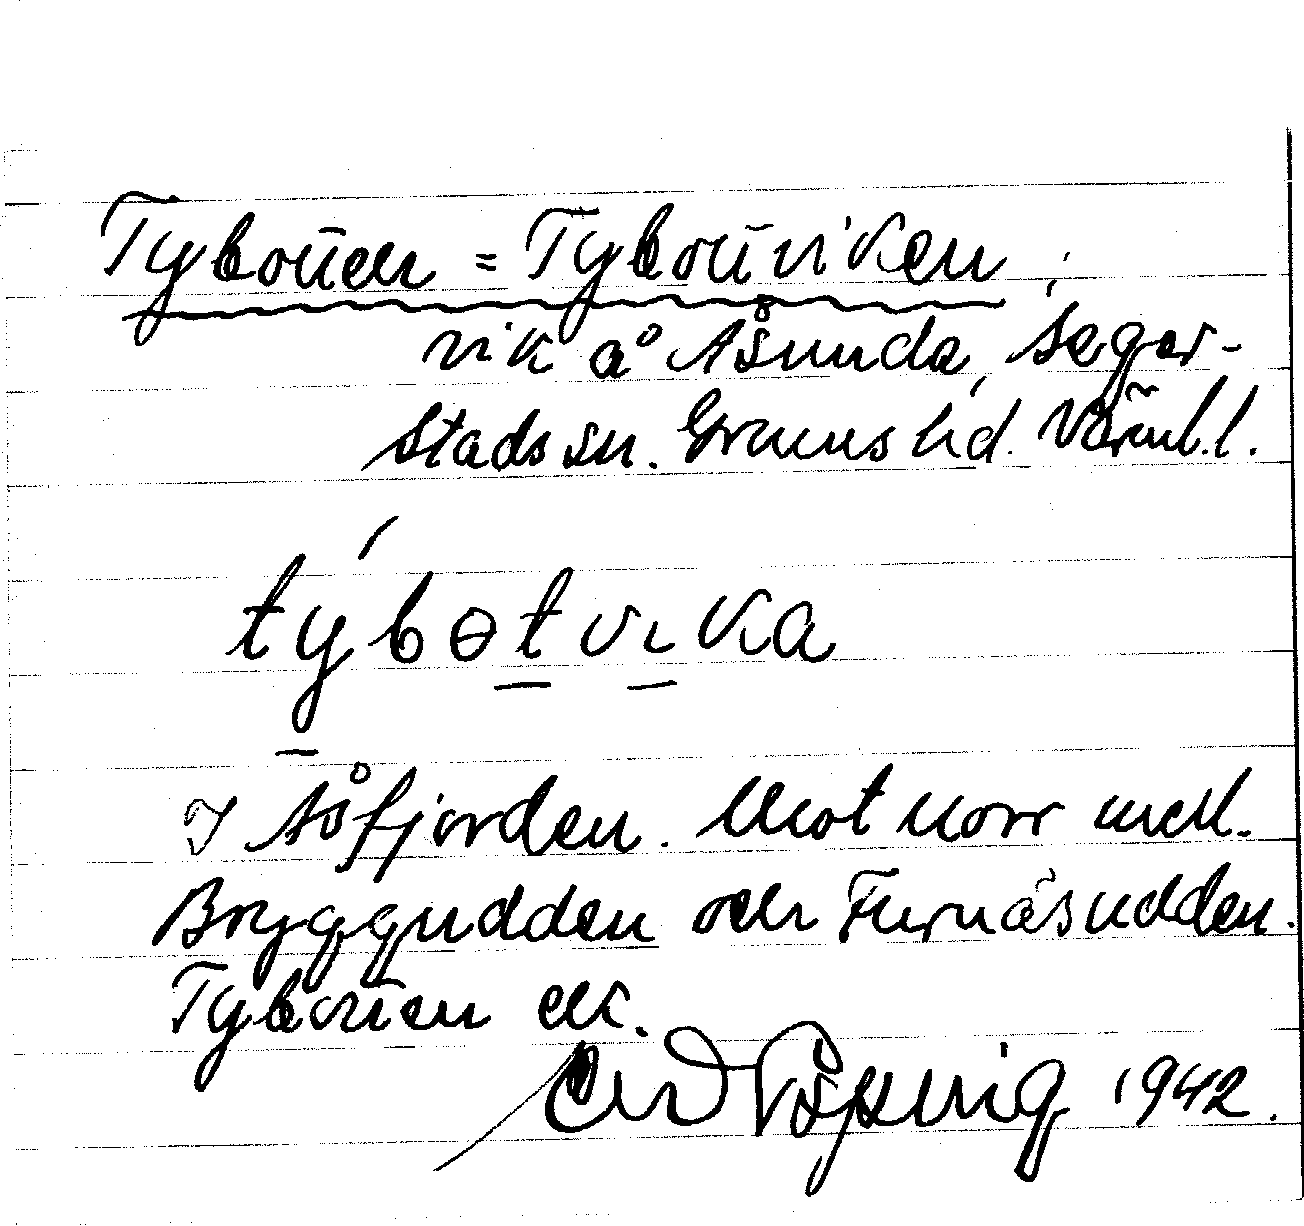 Tybotten = Tybottviken,
vik å Åsunda, Seger-
stads sn. Grums hd. Värml. l.
týbɵtvika
I Åsfjorden. Mot norr mell.
Bryggudden och Furnäsudden.
Tybotten ek.
1942.